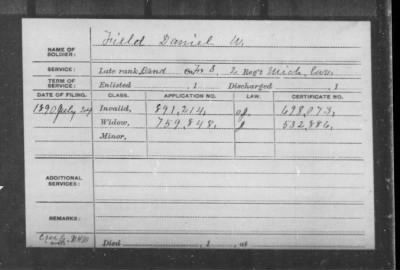 Field Daniel W.
NAME OF SOLDIER:
SERVICE: Late rank, Band 2 Reg't Mich. Cav.
TERM OF SERVICE: Enlisted , 1 Discharged , 1
DATE OF FILING. CLASS. APPLICATION NO. LAW. CERTIFICATE NO.
1890 July 24 Invalid, 891,214
Widow, 759,848 532,886
Minor,
ADDITIONAL SERVICES:
REMARKS:
Died , 1 , at